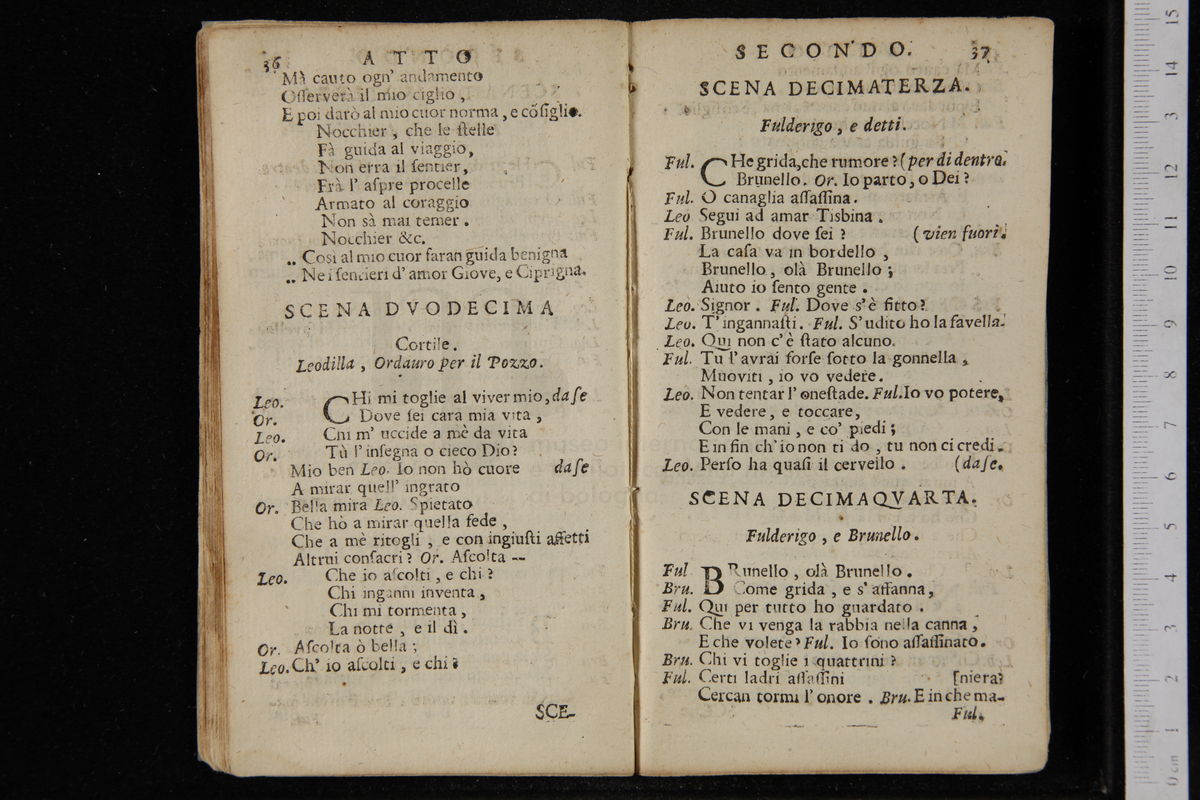 36 ATTO
Mà cauto ogn' andamento
Osserverà il mio ciglio,
E poi darò al mio cuor norma, e cõsiglio.
Nocchier, che le stelle
Fà guida al viaggio,
Non erra il sentier,
Frà l' aspre procelle
Armato al coraggio
Non sà mai temer.
Nocchier &c.
,, Così al mio cuor faran guida benigna
,, Ne i sentieri d' amor Giove, e Ciprigna.
SCENA DVODECIMA
Cortile.
Leodilla, Ordauro per il Pozzo.
Leo. CHi mi toglie al viver mio, da se
Or. Dove sei cara mia vita,
Leo. Chi m' uccide a mè da vita
Or. Tù l' insegna o cieco Dio?
Mio ben Leo. Io non hò cuore da se
A mirar quell' ingrato
Or. Bella mira Leo. Spietato
Che hò a mirar quella fede,
Che a mè ritogli, e con ingiusti affetti
Altrui consacri? Or. Ascolta --
Leo. Che io ascolti, e chi?
Chi inganni inventa,
Chi mi tormenta,
La notte, e il dì.
Or. Ascolta ò bella;
Leo. Ch' io ascolti, e chi?
SCE-
SECONDO. 37
SCENA DECIMATERZA.
Fulderigo, e detti.
Ful. CHe grida, che rumore? (per di dentro.
Brunello. Or. Io parto, o Dei?
Ful. O canaglia assassina.
Leo Segui ad amar Tisbina.
Ful. Brunello dove sei? (vien fuori.
La casa va in bordello,
Brunello, olà Brunello;
Aiuto io sento gente.
Leo. Signor. Ful. Dove s' è fitto?
Leo. T' ingannasti. Ful. S' udito ho la favella.
Leo. Qui non c' è stato alcuno.
Ful. Tu l' avrai forse sotto la gonnella,
Muoviti, io vo vedere.
Leo. Non tentar l' onestade. Ful. Io vo potere,
E vedere, e toccare,
Con le mani, e co' piedi;
E in fin ch' io non ti do, tu non ci credi.
Leo. Perso ha quasi il cervello. (da se.
SCENA DECIMAQVARTA.
Fulderigo, e Brunello.
Ful BRunello, olà Brunello.
Bru. Come grida, e s' affanna,
Ful. Qui per tutto ho guardato.
Bru. Che vi venga la rabbia nella canna,
E che volete? Ful. Io sono assassinato.
Bru. Chi vi toglie i quattrini?
Ful. Certi ladri assassini [niera?
Cercan tormi l' onore. Bru. E in che ma-
Ful.